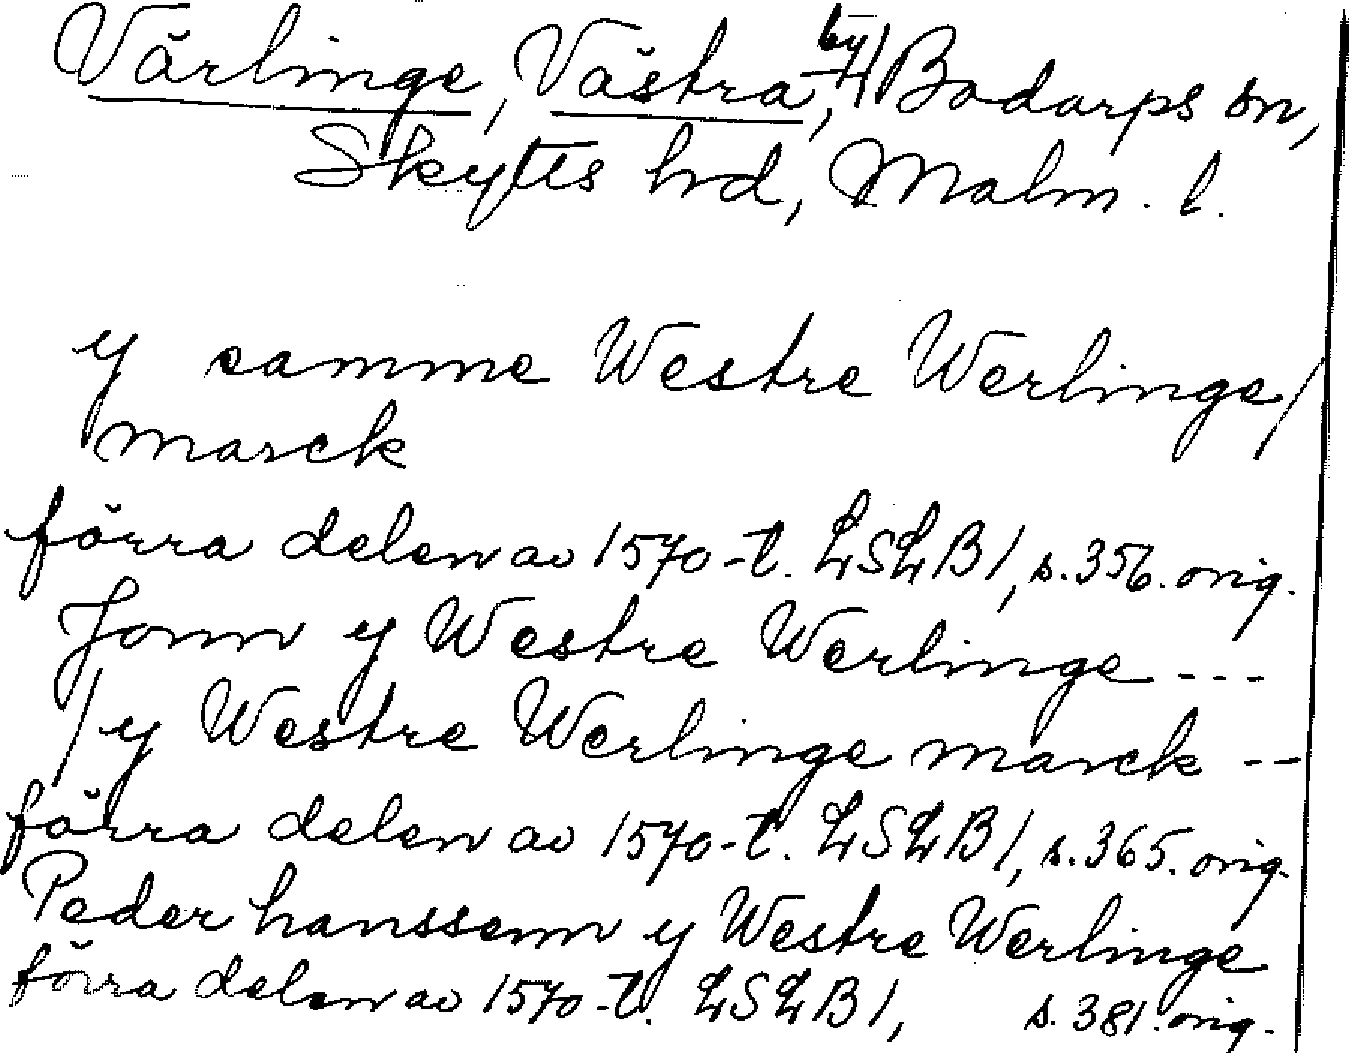 Värlinge, Västra, by Bodarps sn,
Skytts hd, Malm. l.
y samme Westre Werlinge/
marck
förra delen av 1570-t. LSLB 1, s. 356. orig.
Jonn y Westre Werlinge ---
/ y Westre Werlinge marck --
förra delen av 1570-t. LSLB 1, s. 365. orig.
Peder hanssenn y Westre Werlinge
förra delen av 1570-t. LSLB 1, s. 381. orig.